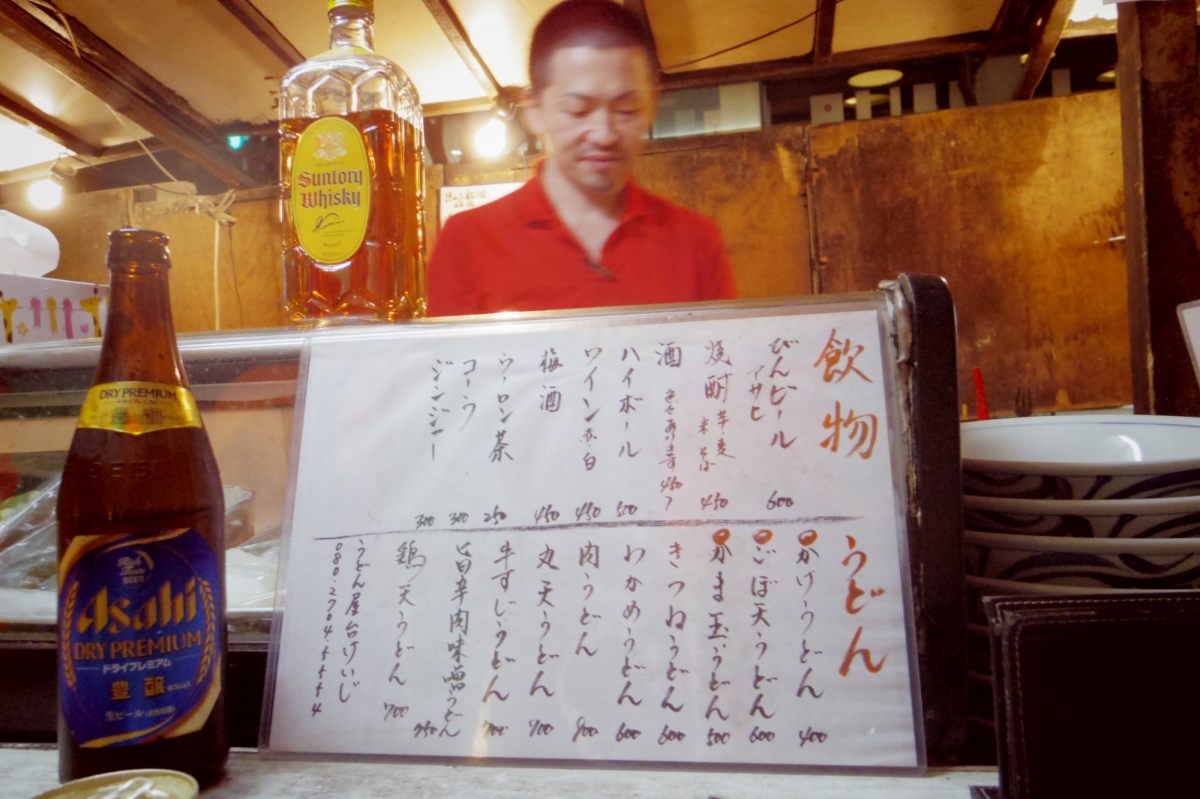 Suntory
Whisky
DRY PREMIUM
ドライプレミアム
豊醸
Asahi
DRY PREMIUM
ドライプレミアム
豊醸
ほうじょう
生ビール
飲物
びんビール アサヒ 600
焼酎 芋・麦 米 そば 450
酒 色々あります 450
ハイボール 500
ワイン 赤・白 450
梅酒 450
ウーロン茶 250
コーラ 300
ジンジャー 300
うどん
かけうどん 400
ごぼ天うどん 600
かま玉うどん 500
きつねうどん 600
わかめうどん 600
肉うどん
丸天うどん 700
牛すじうどん 700
旨辛肉味噌うどん
鶏天うどん 700
うどん屋台けいじ
080-2704-5554